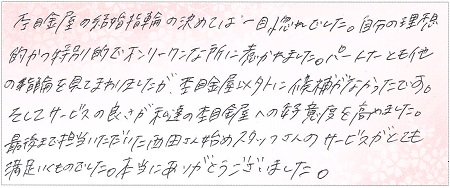 杢目金屋の結婚指輪の決めては一目惚れでした。自分の理想
的かつ特別的でオンリーワンな所に惹かれました。パートナーとも他
の指輪を見てまわりましたが、杢目金屋以外に候補がなかったです。
そしてサービスの良さが私達の杢目金屋への好意度を高めました。
最後まで担当いただいた西田さん始めスタッフさんのサービスがとても
満足いくものでした。本当にありがとうございました。